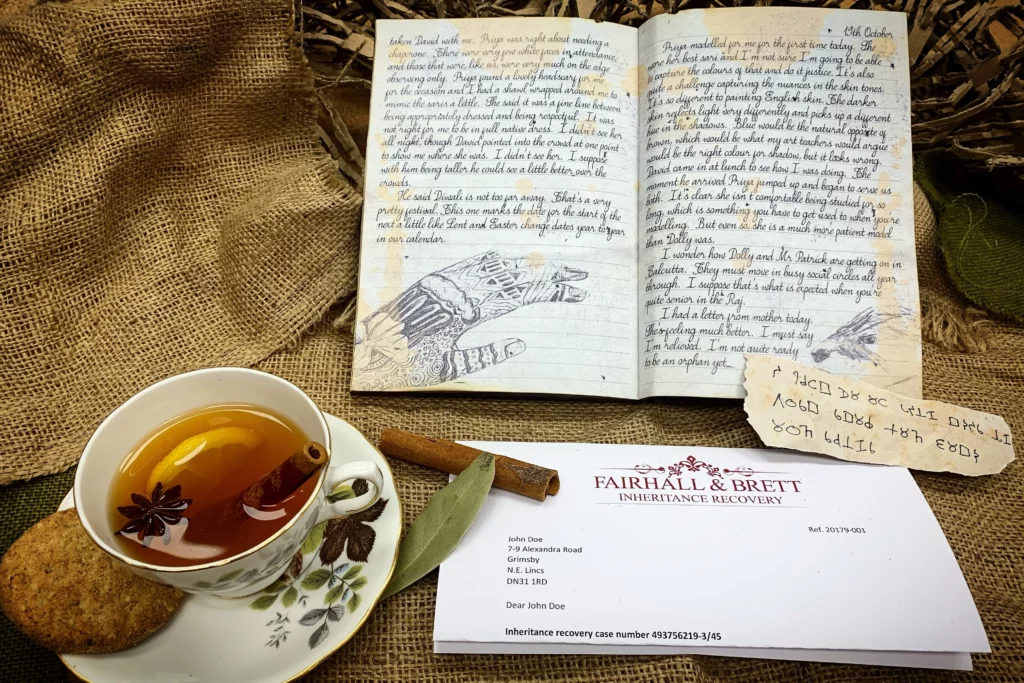 taken David with me. Priya was right about needing a
chaperone. There were very few white faces in attendance,
and those that were, like us, were very much on the edge
observing only. Priya found a lovely headscarf for me
for the occasion and I had a shawl wrapped around me to
mimic the saris a little. She said it was a fine line between
being appropriately dressed and being respectful. It was
not right for me to be in full native dress. I didn't see her
all night, though David pointed into the crowd at one point
to show me where she was. I didn't see her. I suppose
with him being taller he could see a little better over the
crowds.
He said Diwali is not too far away. That's a very
pretty festival. This one marks the date for the start of the
next a little like Lent and Easter change dates year to year
in our calendar.
19th October
Priya modelled for me for the first time today. She
wore her best sari and I'm not sure I'm going to be able
to capture the colours of that and do it justice. It's also
quite a challenge capturing the nuances in the skin tones.
It's so different to painting English skin. The darker
skin reflects light very differently and picks up a different
hue in the shadows. Blue would be the natural opposite of
brown, which would be what my art teachers would argue
would be the right colour for shadow, but it looks wrong.
David came in at lunch to see how I was doing. The
moment he arrived Priya jumped up and began to serve us
both. It's clear she isn't comfortable being studied for so
long, which is something you have to get used to when you're
modelling. But even so, she is a much more patient model
than Dolly was.
I wonder how Dolly and Mr Patrick are getting on in
Calcutta. They must move in busy social circles all year
through. I suppose that's what is expected when you're
quite senior in the Raj.
I had a letter from mother today.
She's feeling much better. I must say
I'm relieved. I'm not quite ready
to be an orphan yet.
FAIRHALL & BRETT
INHERITANCE RECOVERY
Ref. 20179-001
John Doe
7-9 Alexandra Road
Grimsby
N.E. Lincs
DN31 1RD
Dear John Doe
Inheritance recovery case number 493756219-3/45